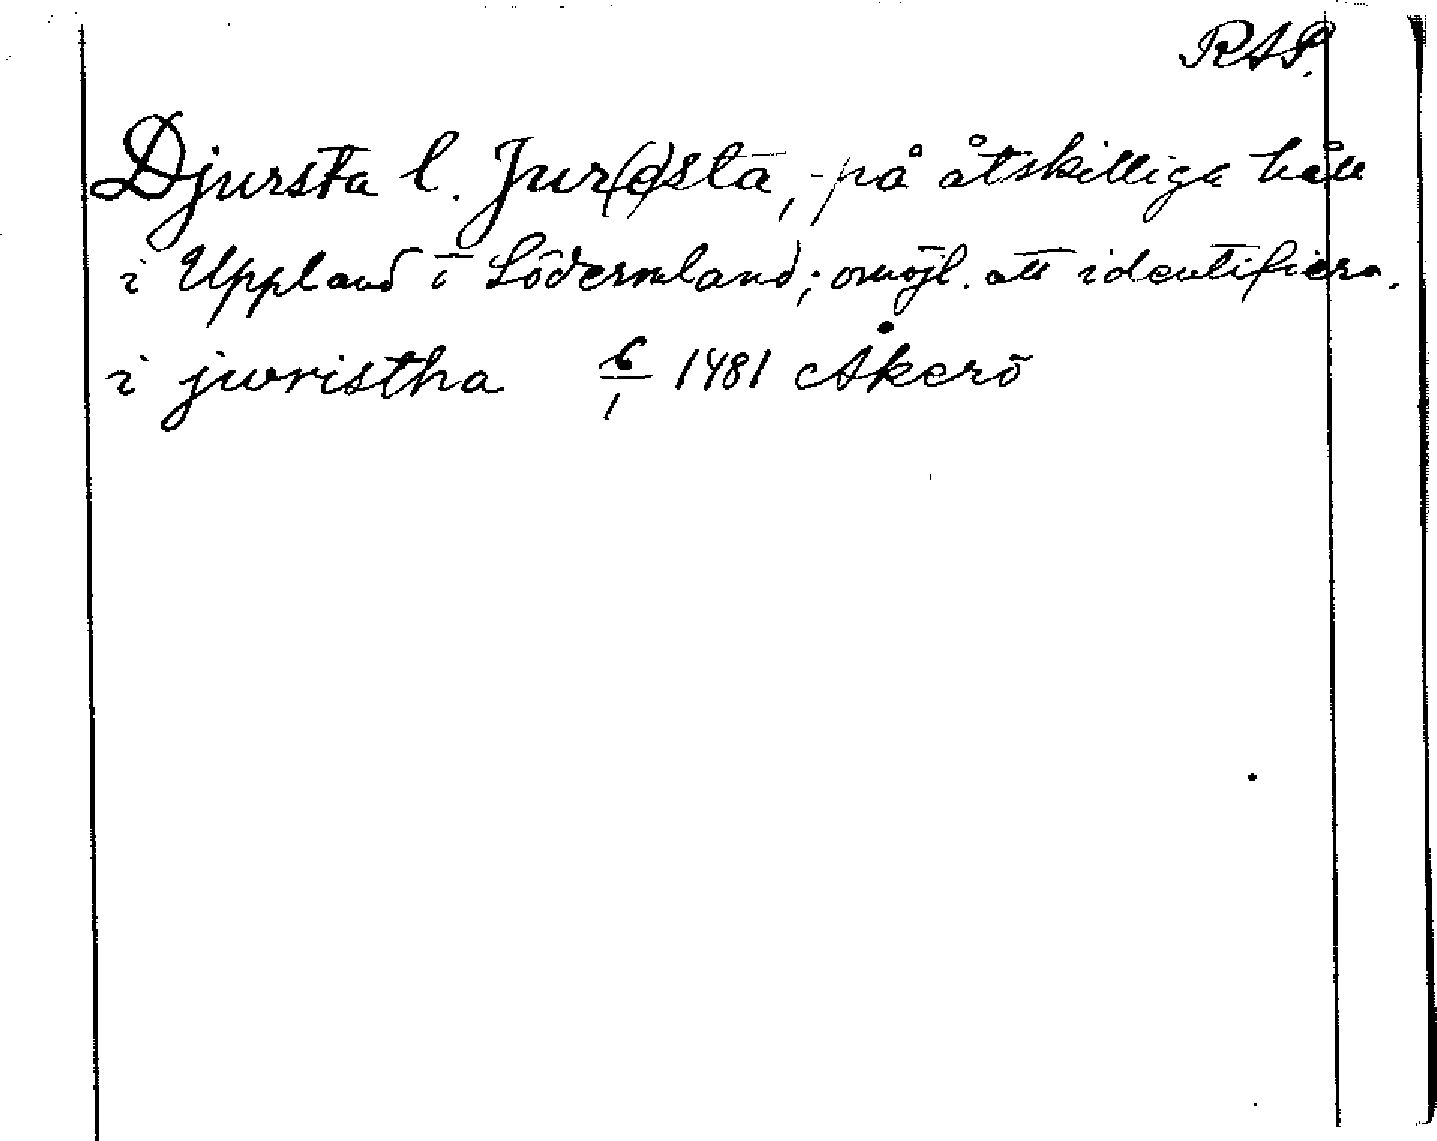 RAP.
Djursta l. Jur(e)sta, på åtskilliga håll
i Uppland o Södermland; omöjl. att identifiera.
i jwristha 6/1 1481 Åkerö